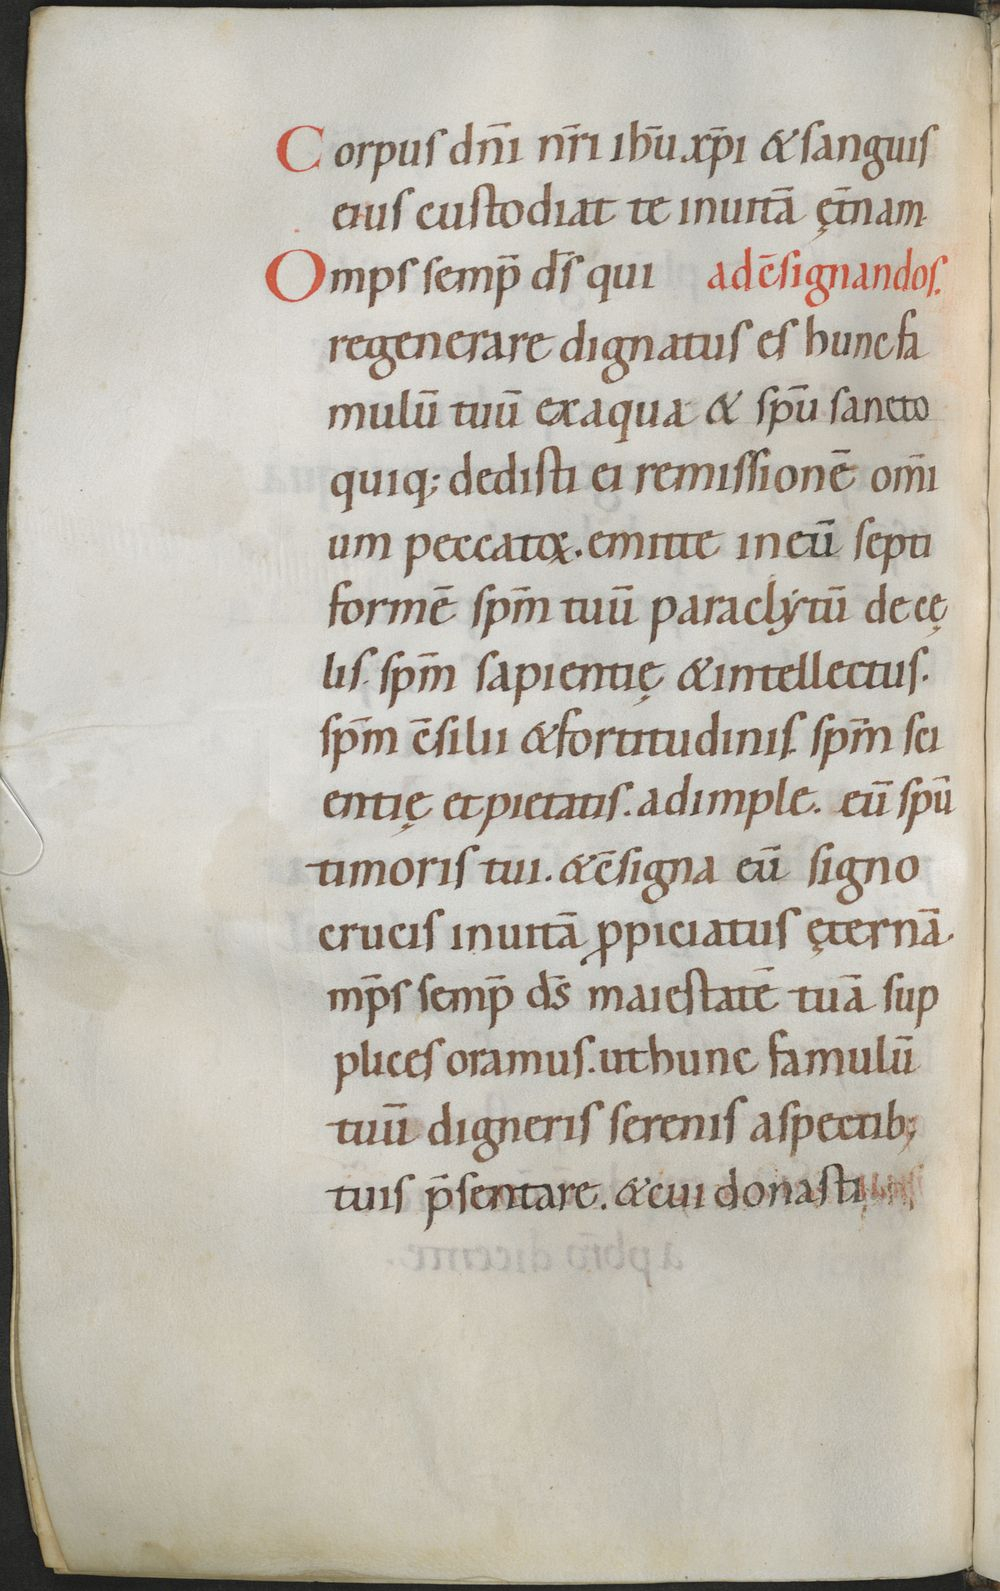 Corpus dn̄i nr̄i ihū xp̄i & sanguis
eius custodiat te inuitā ęt̄nam
Omps semp̄ ds̄ qui adc̄signandos.
regenerare dignatus es hunc fa
mulū tuū exaqua & spū sancto
quiq; dedisti ei remissionē om̄i
um peccatoꝝ. emitte ineū septi
formē spm̄ tuū paraclẏtū de cę
lis. spm̄ sapientię & intellectus.
spm̄ c̄silii & fortitudinis. spm̄ sci
entię et pietatis. adimple. eū spū
timoris tui. & c̄signa eū signo
crucis inuitā ꝓpiciatus ęternā.
mp̄s semp̄ ds̄ maiestatē tuā sup
plices oramus. ut hunc famulū
tuū digneris serenis aspectib;
tuis p̄sentare. & cui donasti